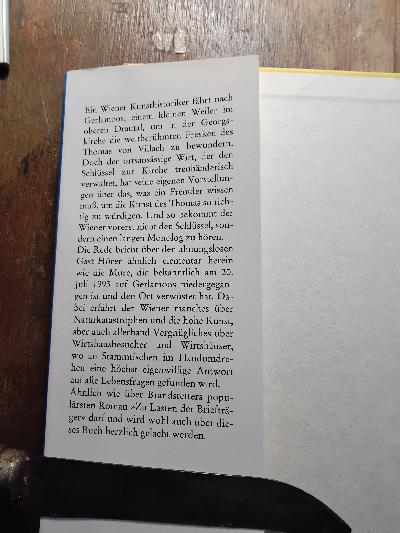 Ein Wiener Kunsthistoriker fährt nach
Gerlamoos, einem kleinen Weiler im
oberen Drautal, um in der Georgs-
kirche die weltberühmten Fresken des
Thomas von Villach zu bewundern.
Doch der ortsansässige Wirt, der den
Schlüssel zur Kirche treuhänderisch
verwaltet, hat seine eigenen Vorstellun-
gen über das, was ein Fremder wissen
muß, um die Kunst des Thomas so rich-
tig zu würdigen. Und so bekommt der
Wiener vorerst nicht den Schlüssel, son-
dern einen langen Monolog zu hören.
Die Rede bricht über den ahnungslosen
Gast-Hörer ähnlich elementar herein
wie die Mure, die bekanntlich am 20.
Juli 1993 auf Gerlamoos niedergegan-
gen ist und den Ort verwüstet hat. Da-
bei erfährt der Wiener manches über
Naturkatastrophen und die hohe Kunst,
aber auch allerhand Vergnügliches über
Wirtshausbesucher und Wirtshäuser,
wo an Stammtischen im Handumdre-
hen eine höchst eigenwillige Antwort
auf alle Lebensfragen gefunden wird.
Ähnlich wie über Brandstetters popu-
lärsten Roman »Zu Lasten der Briefträ-
ger« darf und wird wohl auch über die-
ses Buch herzlich gelacht werden.